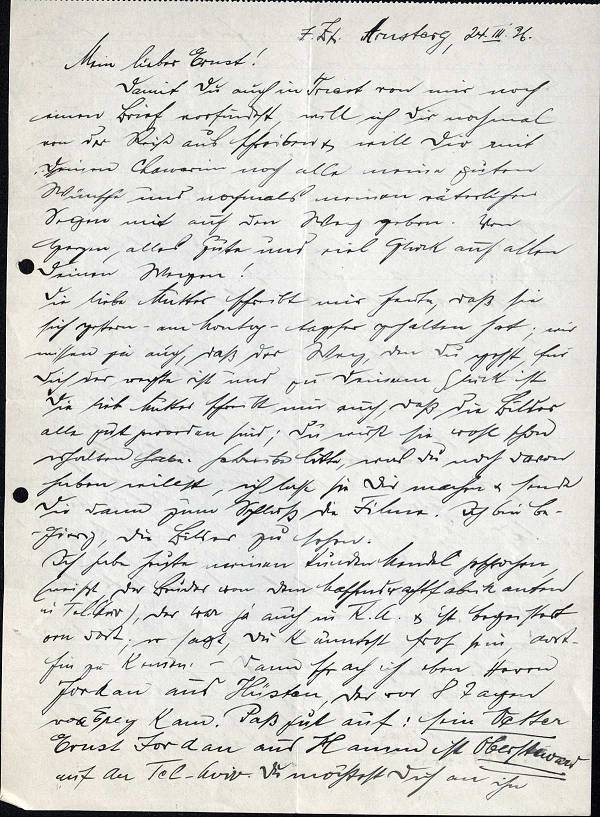 z. Zt. Arnsberg, 24. III. 36.
Mein lieber Ernst!
Damit Du auch in Triest von mir noch
einen Brief vorfindest, will ich Dir nochmal
von der Reise aus schreiben & will Dir mit
Deinen Chawerim noch alle meine guten
Wünsche und nochmals meinen väterlichen
Segen mit auf den Weg geben. Von
Herzen, alles Gute und viel Glück auf allen
Deinen Wegen!
Die liebe Mutter schreibt mir heute, daß sie
sich gestern - am Montag - tapfer gehalten hat; wir
wissen ja auch, daß der Weg, den Du gehst, für
Dich der rechte ist und zu Deinem Glück ist
Die lieb Mutter schreibt mir auch, daß die Bilder
alle gut geworden sind; Du wirst sie wohl schon
erhalten haben. Schreibe bitte, was Du noch davon
haben willst, ich lasse sie Dir machen & sende
Dir dann zum Schluß die Filme. Ich bin be-
gierig, die Bilder zu sehen.
Ich habe heute meinen Kunden Mendel gesprochen,
(weißt, der Bruder von dem
in Tel Aviv), der war ja auch in K. A. & ist begeistert
von dort. er sagt, Du könntest froh sein, dort-
hin zu kommen. - Dann sprach ich eben Herrn
Jordan aus Hüsten, der vor 8 Tagen
von Erez kam. Paß gut auf: sein Vetter
Ernst Jordan aus Hamm ist Obersteward
auf der Tel-Aviv. Du möchtest Dich an ihn